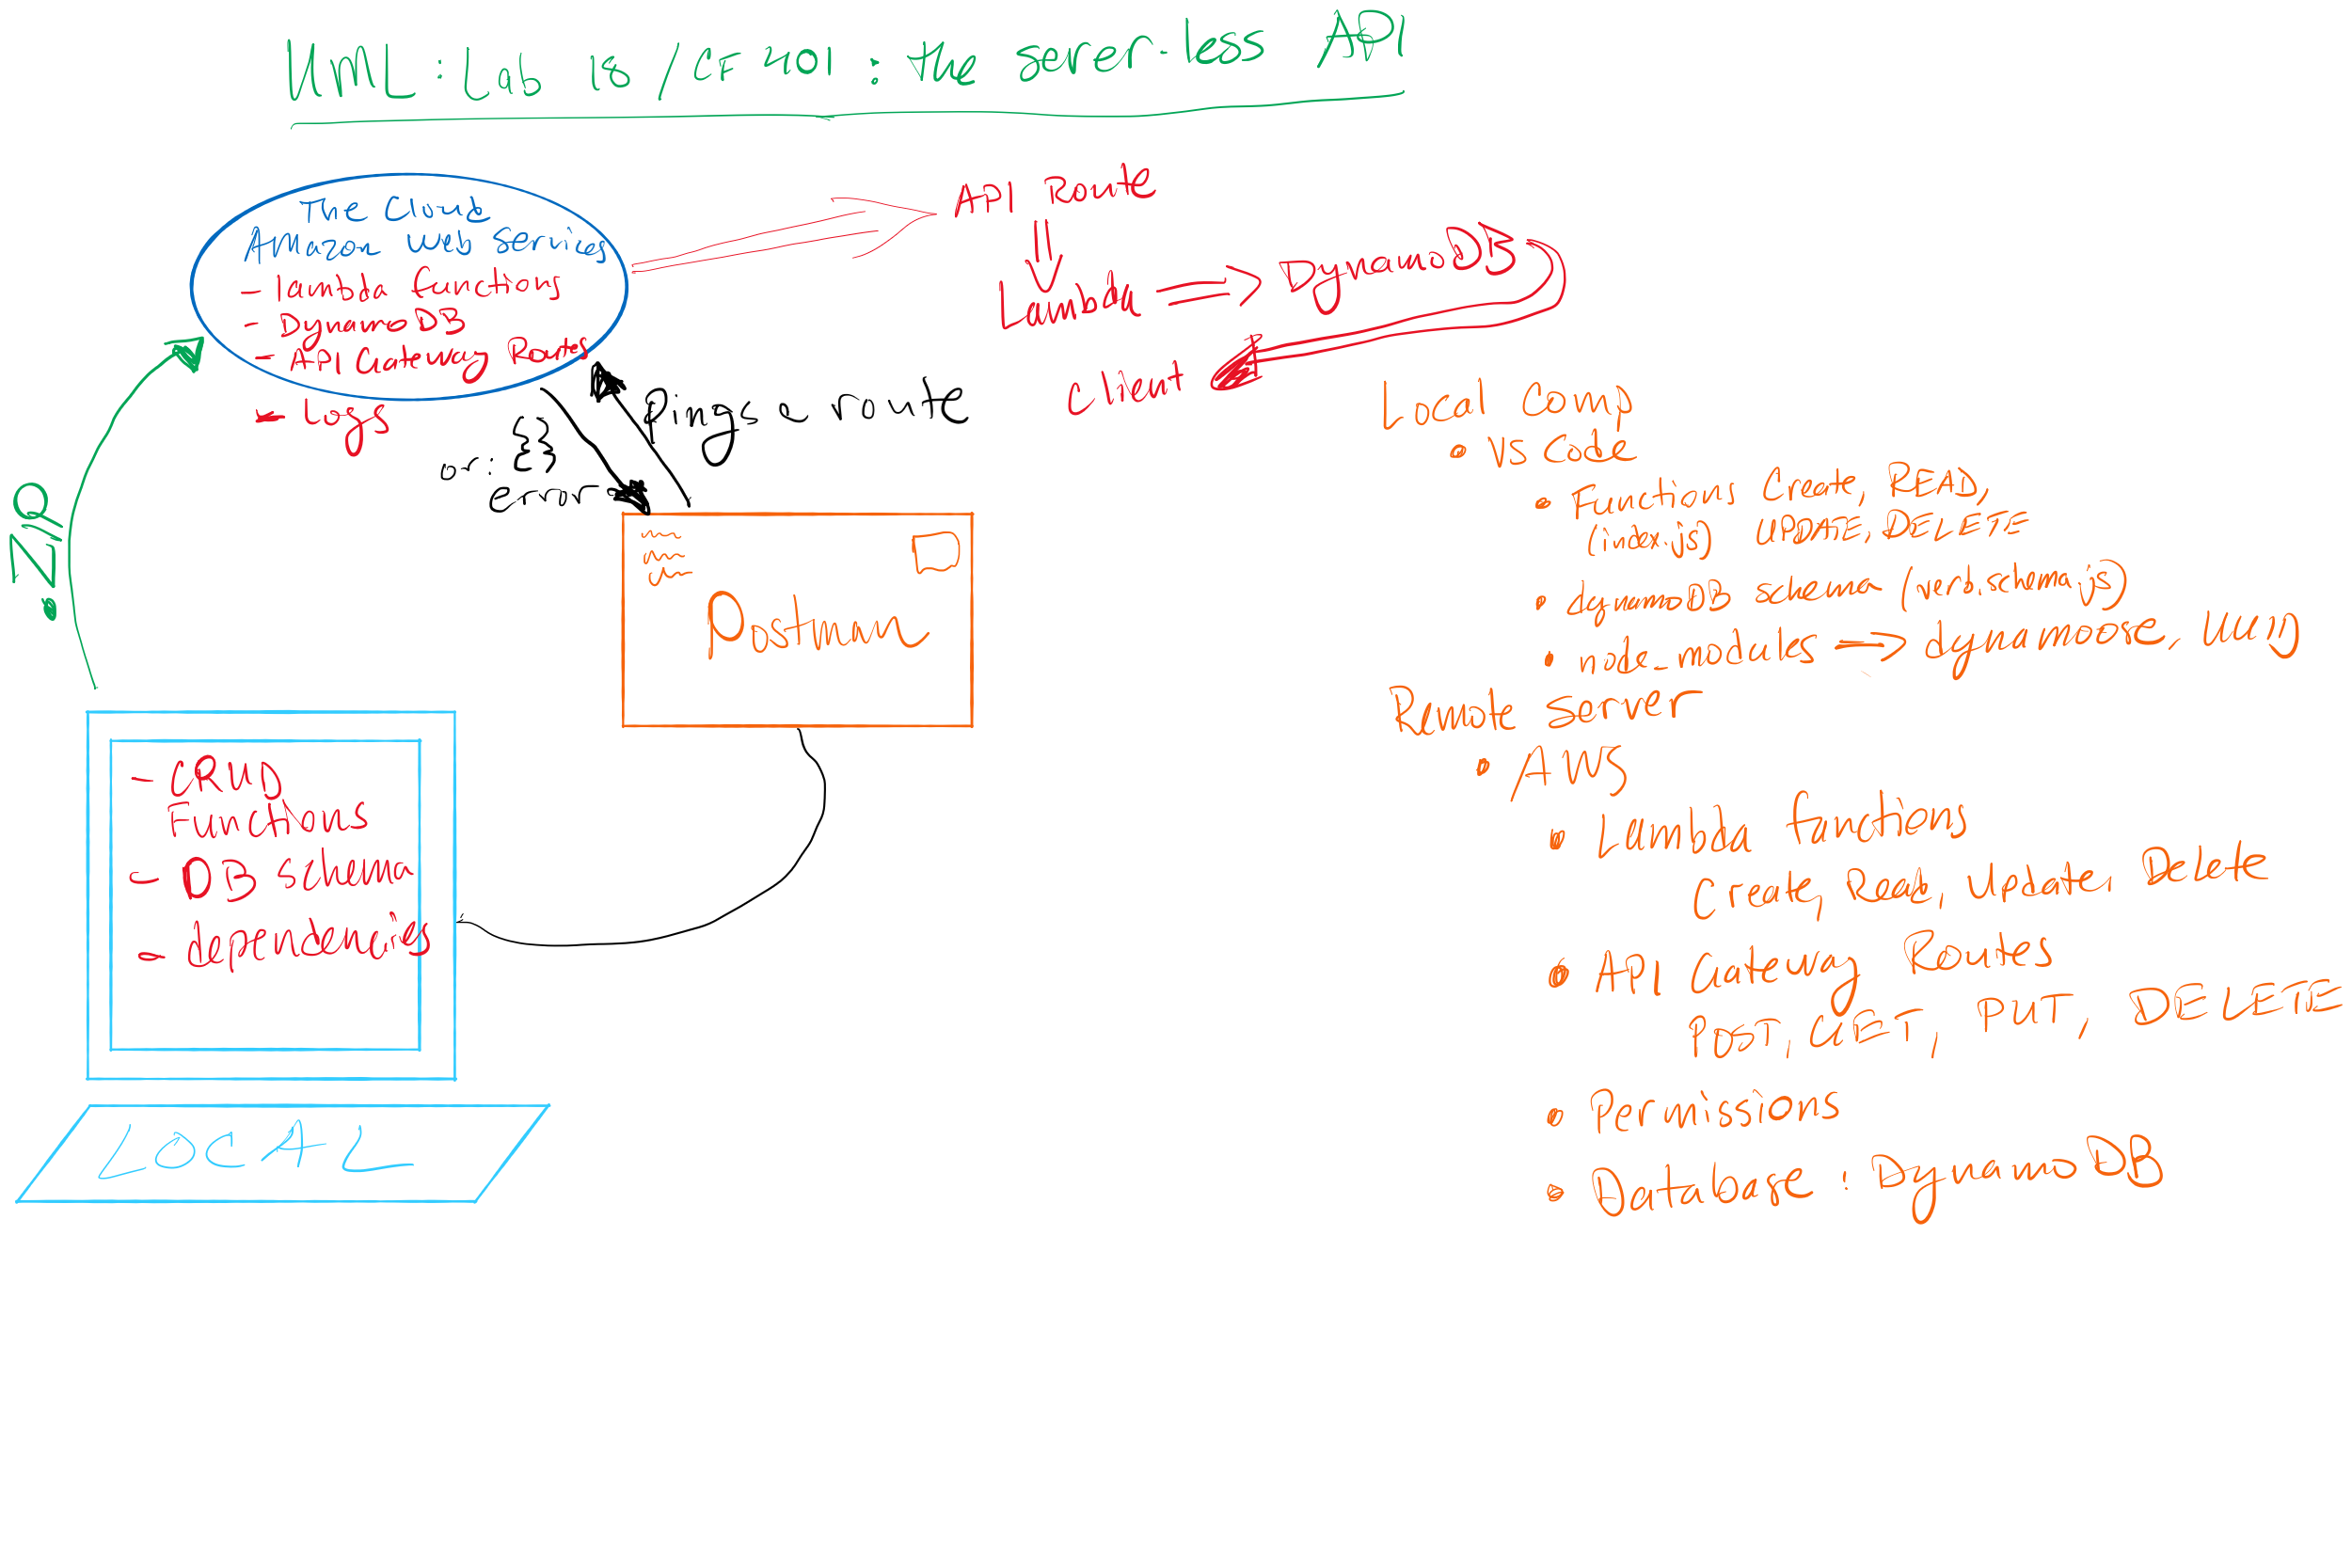 UML: Lab 18 / CF 401 : the server-less API
The Cloud
Amazon Web Services
- lambda functions
- DynamoDB
- API Gateway Routes
- Logs
API Route
Lambda => DynamoDB
Client
Pings a route
or: {}
error
• ZIP
Postman
- CRUD
Functions
- DB schema
- dependencies
LOCAL
Local Comp
• VS Code
• Functions Create, READ,
(index.js) UPDATE, DELETE
• dynamoDB schema (verb.schema.js)
• node_modules => dynamoose, UUID
Remote Server
• AWS
• Lambda functions
Create, Read, Update, Delete
• API Gateway Routes
POST, GET, PUT, DELETE
• Permissions
• Database : DynamoDB